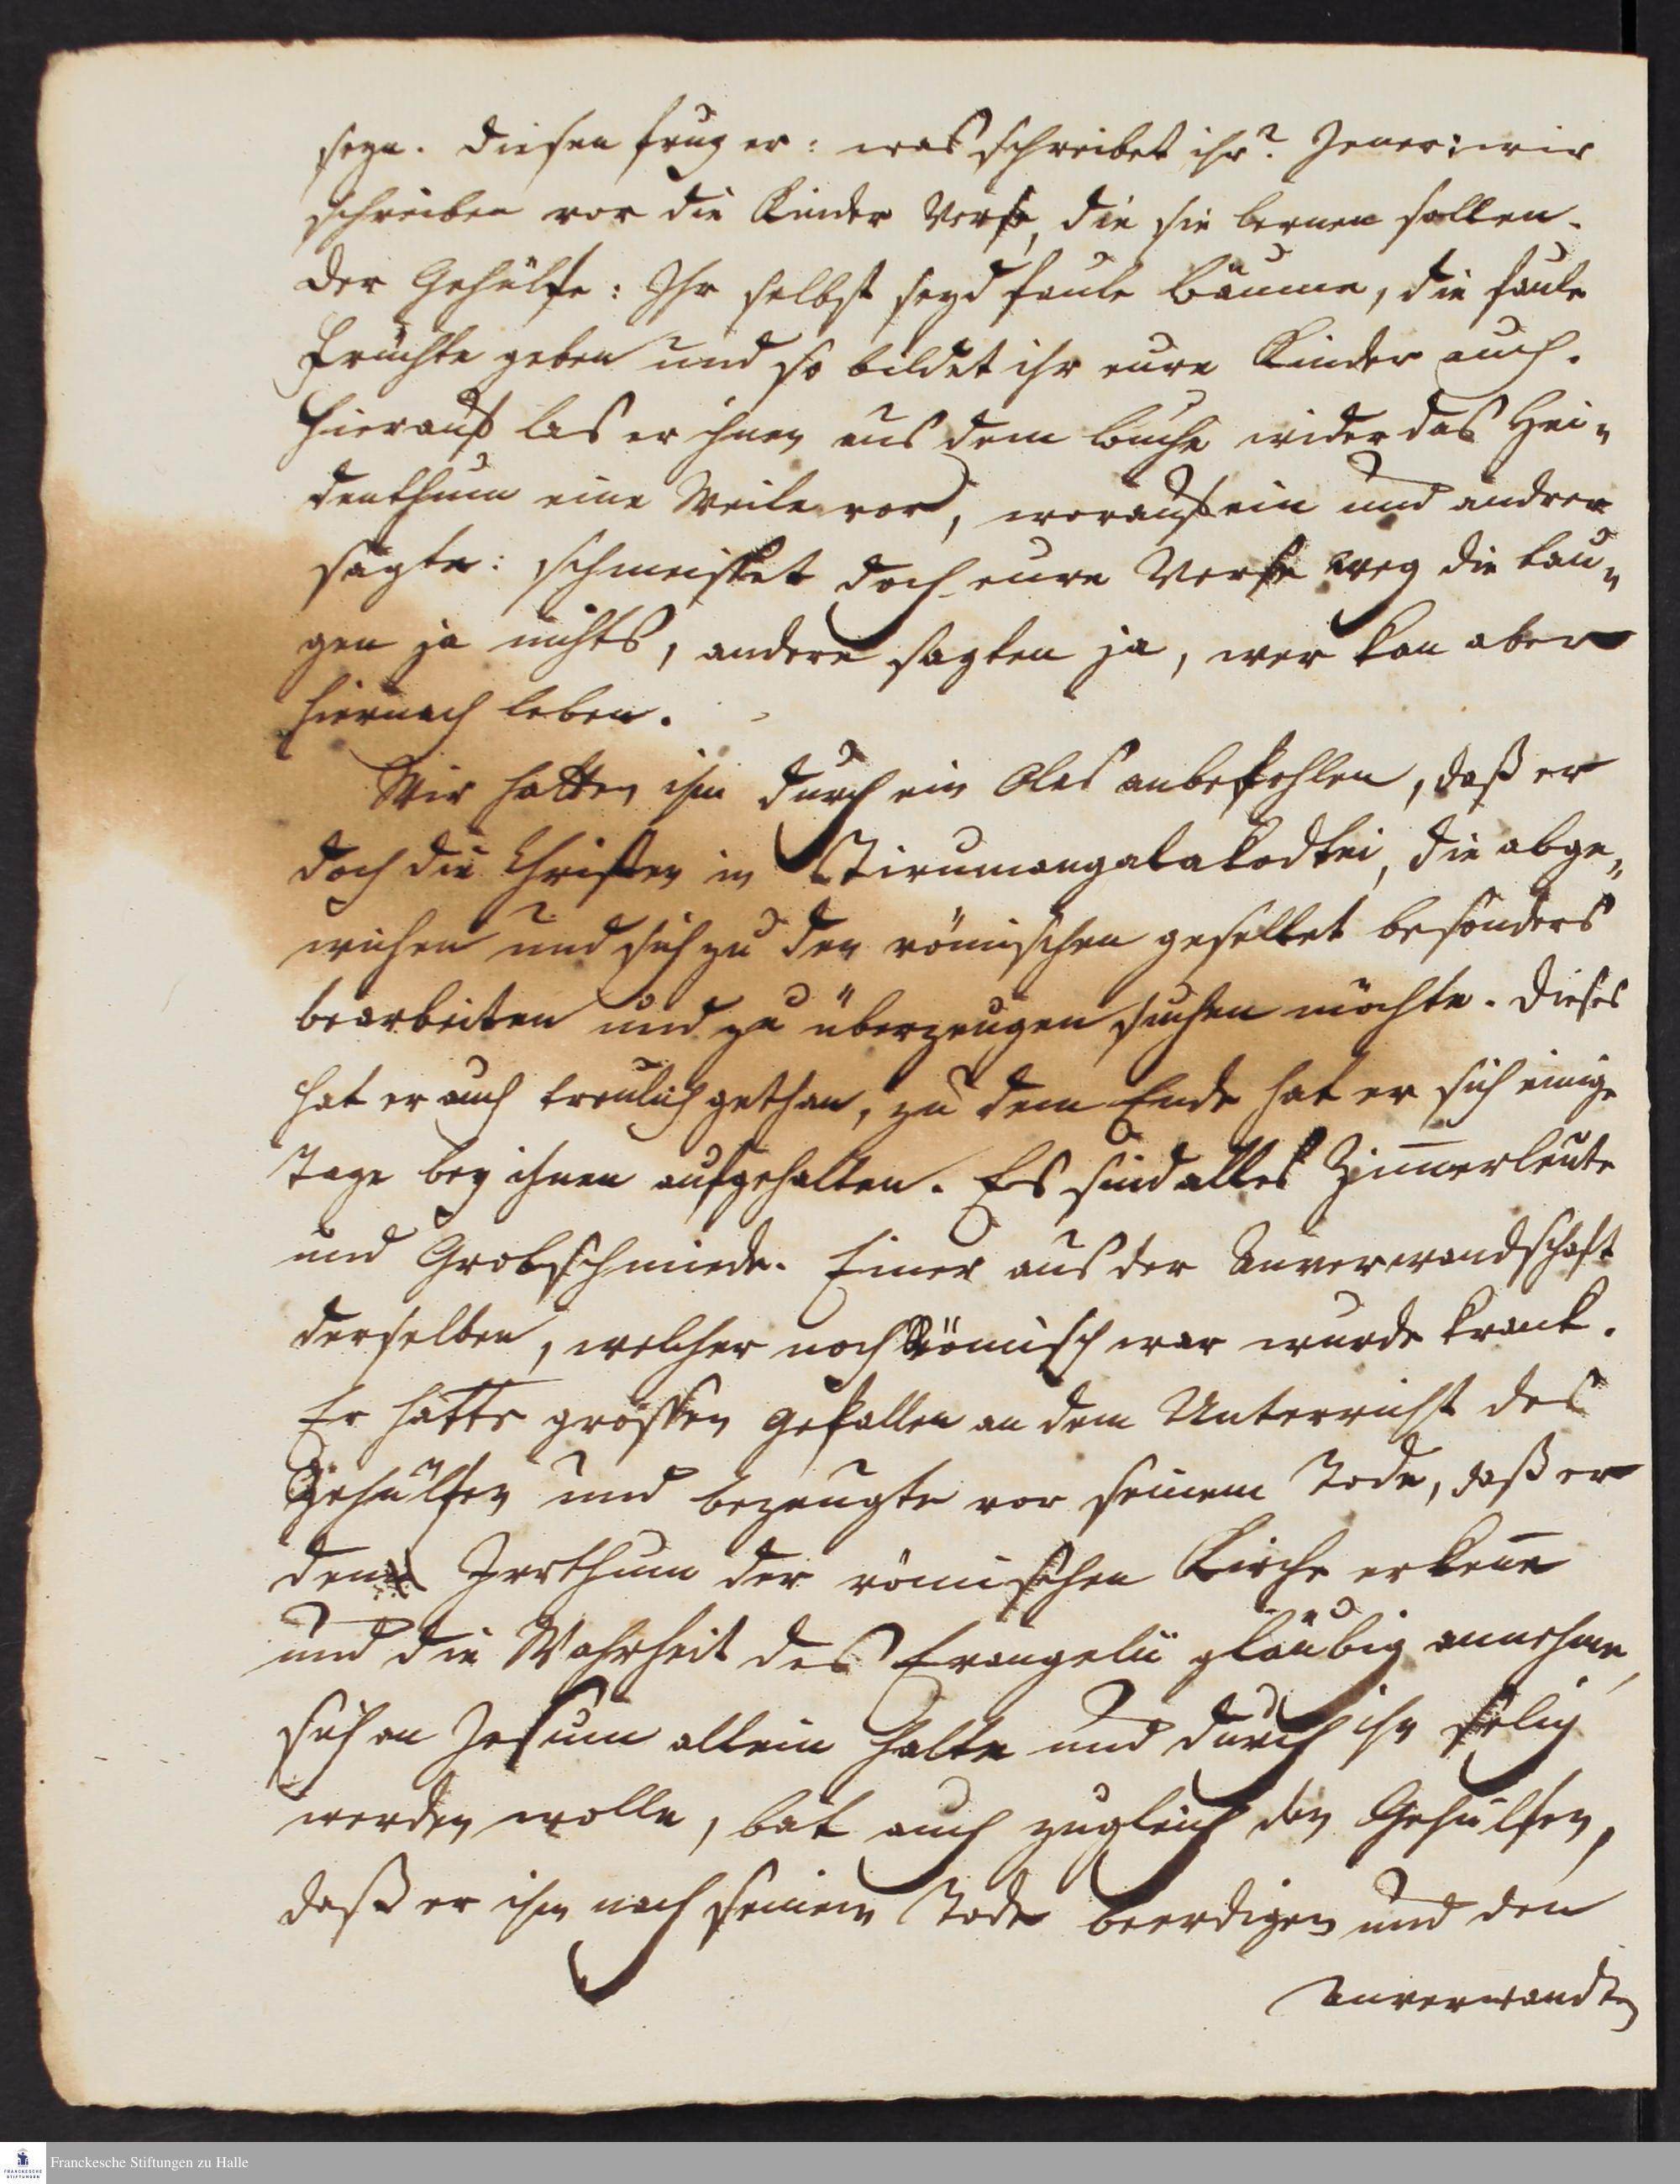 seyn. Diesen frug er: was schreibet ihr? Jener: wir
schreiben vor die Kinder Verse, die sie lernen sollen.
Der Gehülfe: Ihr selbst seyd faule Bäume, die faule
Früchte geben und so bildet ihr eure Kinder auch.
Hierauf las er ihnen aus dem Buche wider das Hei-
denthum eine Weile vor, worauf ein und andrer
sagte: schmeisset doch eure Verse weg die tau-
gen ja nichts, andere sagten ja, wer kan aber
hiernach leben.
Wir hatten ihm durch ein Oles anbefohlen, daß er
doch die Christen in Tirumangalakodtei, die abge-
wichen und sich zu den römischen gesellet besonders
bearbeiten und zu überzeugen suchen möchte. Dieses
hat er auch treulich gethan, zu dem Ende hat er sich einige
Tage bey ihnen aufgehalten. Es sind alles Zim̄erleute
und Grobschmiede. Einer aus der Anverwandschaft
derselben, welcher noch römisch war wurde krank.
Er hatte grossen Gefallen an dem Unterricht des
Gehülfen und bezeugte vor seinem Tode, daß er
den Irrthum der römischen Kirche erken̄e
und die Wahrheit des Evangelii gläubig annehme,
sich an Jesum allein halte und durch ihn selig
werden wolle, bat auch zugleich den Gehülfen,
daß er ihn nach seinem Tode beerdigen und den
Anverwandten
Franckesche Stiftungen zu Halle
FRANCKESCHE
STIFTUNGEN